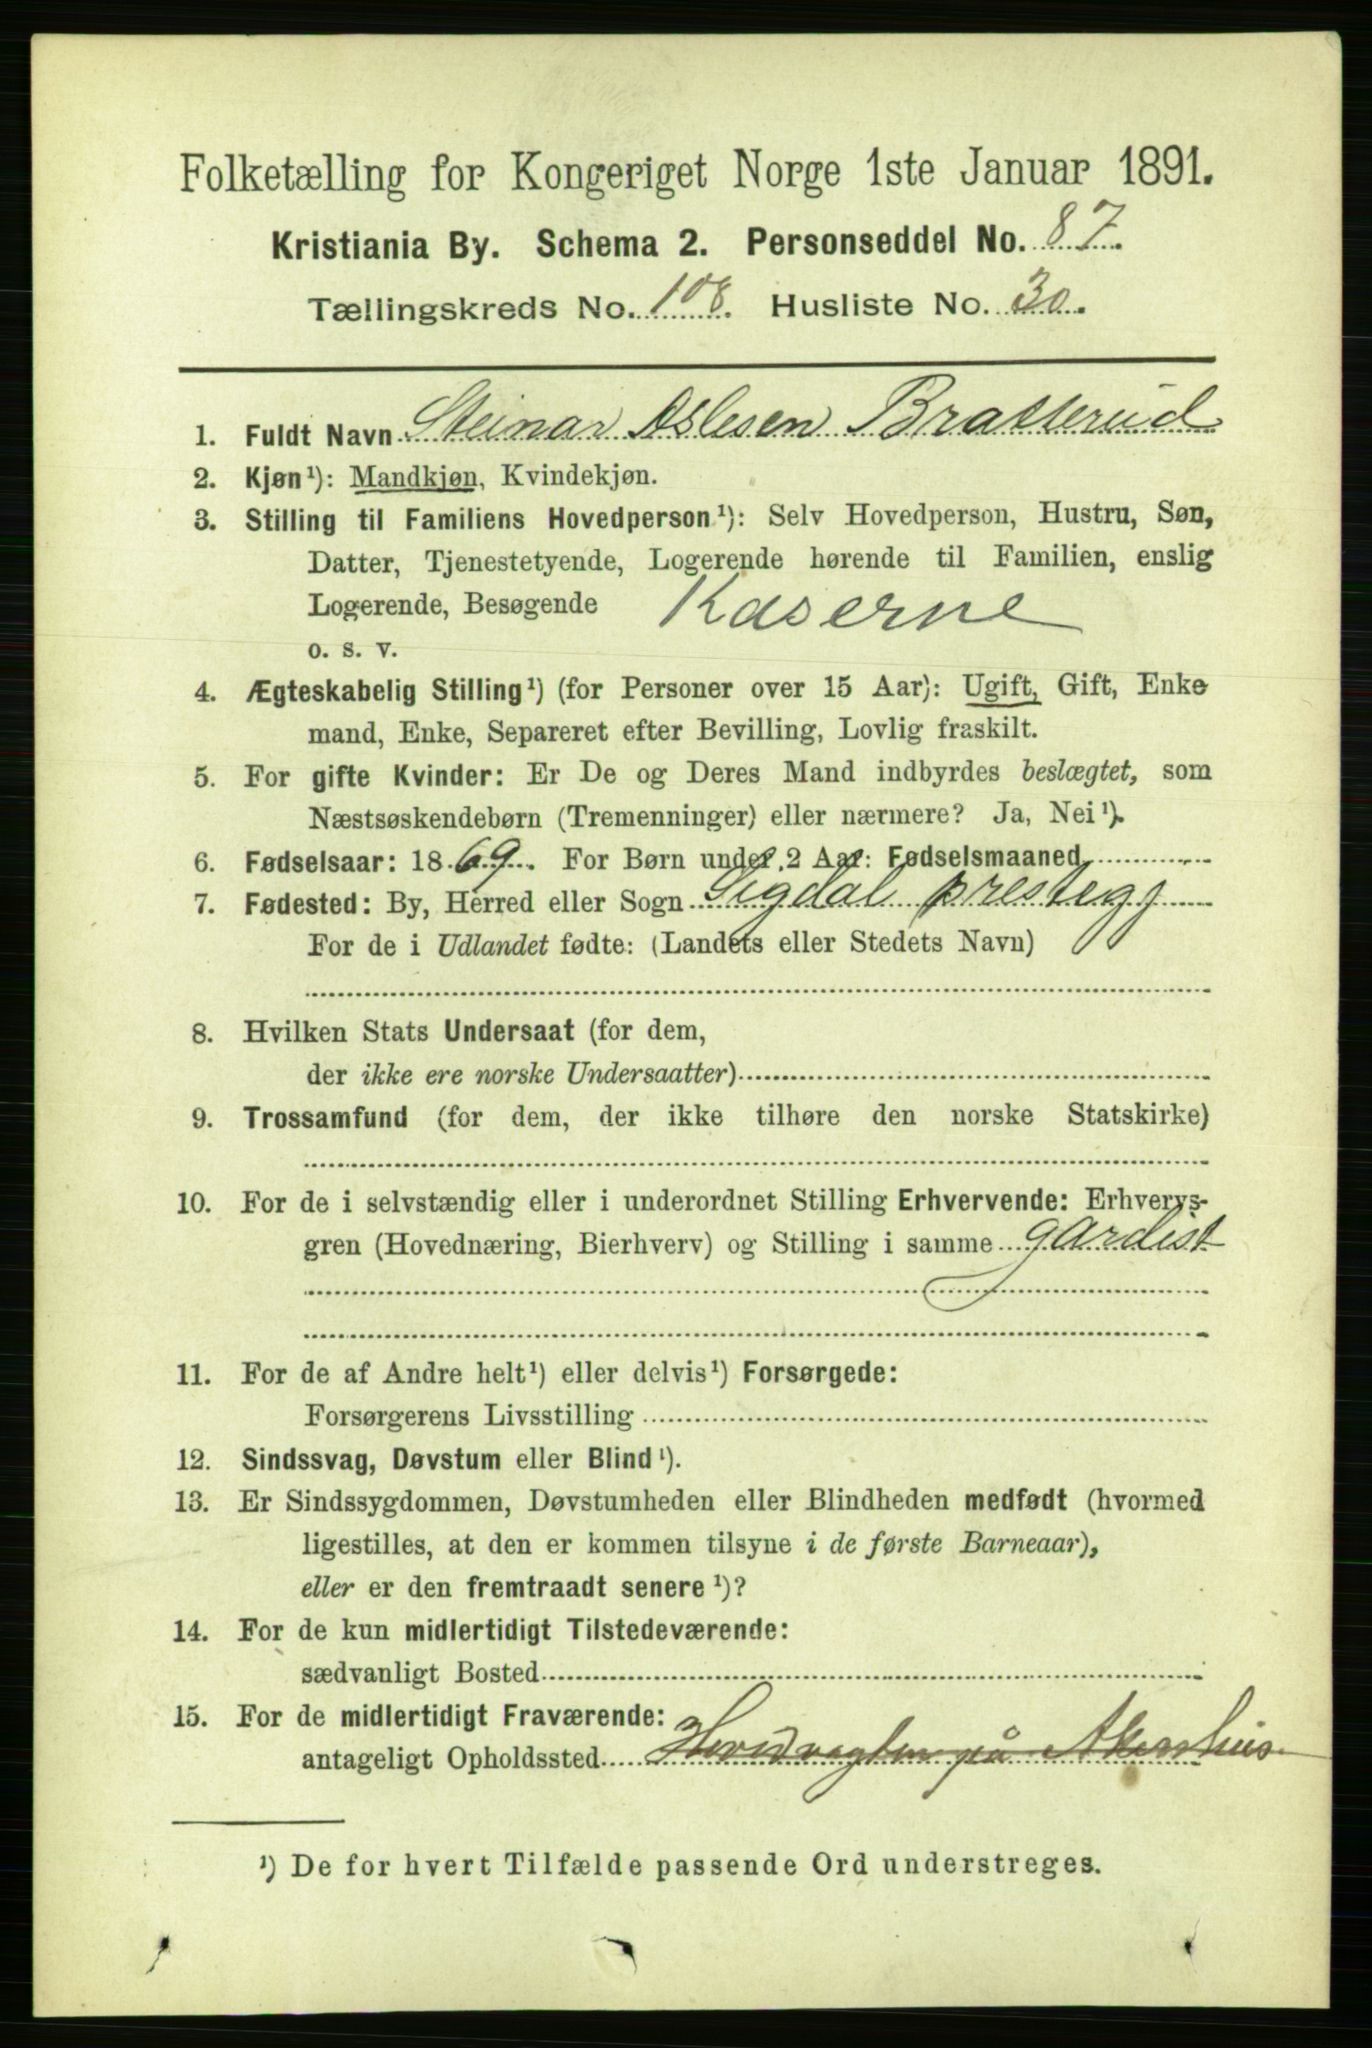 Folketælling for Kongeriget Norge 1ste Januar 1891.
Kristiania By. Schema 2. Personseddel No. 87.
Tællingskreds No. 108. Husliste No. 30.
1. Fuldt Navn Steinar Aslesen Bratterud
2. Kjøn¹): Mandkjøn, Kvindekjøn.
3. Stilling til Familiens Hovedperson¹): Selv Hovedperson, Hustru, Søn,
Datter, Tjenestetyende, Logerende hørende til Familien, enslig
Logerende, Besøgende Kaserne
o. s. v.
4. Ægteskabelig Stilling¹) (for Personer over 15 Aar): Ugift, Gift, Enke
mand, Enke, Separeret efter Bevilling, Lovlig fraskilt.
5. For gifte Kvinder: Er De og Deres Mand indbyrdes beslægtet, som
Næstsøskendebørn (Tremenninger) eller nærmere? Ja, Nei¹).
6. Fødselsaar: 1869. For Børn under 2 Aar: Fødselsmaaned
7. Fødested: By, Herred eller Sogn Sigdal prestegj
For de i Udlandet fødte: (Landets eller Stedets Navn)
8. Hvilken Stats Undersaat (for dem,
der ikke ere norske Undersaatter)
9. Trossamfund (for dem, der ikke tilhøre den norske Statskirke)
10. For de i selvstændig eller i underordnet Stilling Erhvervende: Erhvervs-
gren (Hovednæring, Bierhverv) og Stilling i samme gardist
11. For de af Andre helt¹) eller delvis¹) Forsørgede:
Forsørgerens Livsstilling
12. Sindssvag, Døvstum eller Blind¹).
13. Er Sindssygdommen, Døvstumheden eller Blindheden medfødt (hvormed
ligestilles, at den er kommen tilsyne i de første Barneaar),
eller er den fremtraadt senere¹)?
14. For de kun midlertidigt Tilstedeværende:
sædvanligt Bosted
15. For de midlertidigt Fraværende:
antageligt Opholdssted Hovedvagten på Akershus
¹) De for hvert Tilfælde passende Ord understreges.